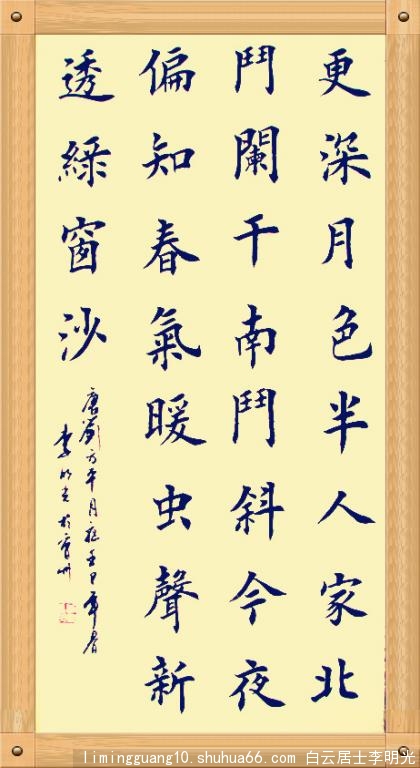 更深月色半人家北
鬥闌干南鬥斜今夜
偏知春氣暖虫聲新
透綠窗沙
唐劉方平月夜巳年春
李明光於州
limingguang10.shuhua66.com 白云居士李明光